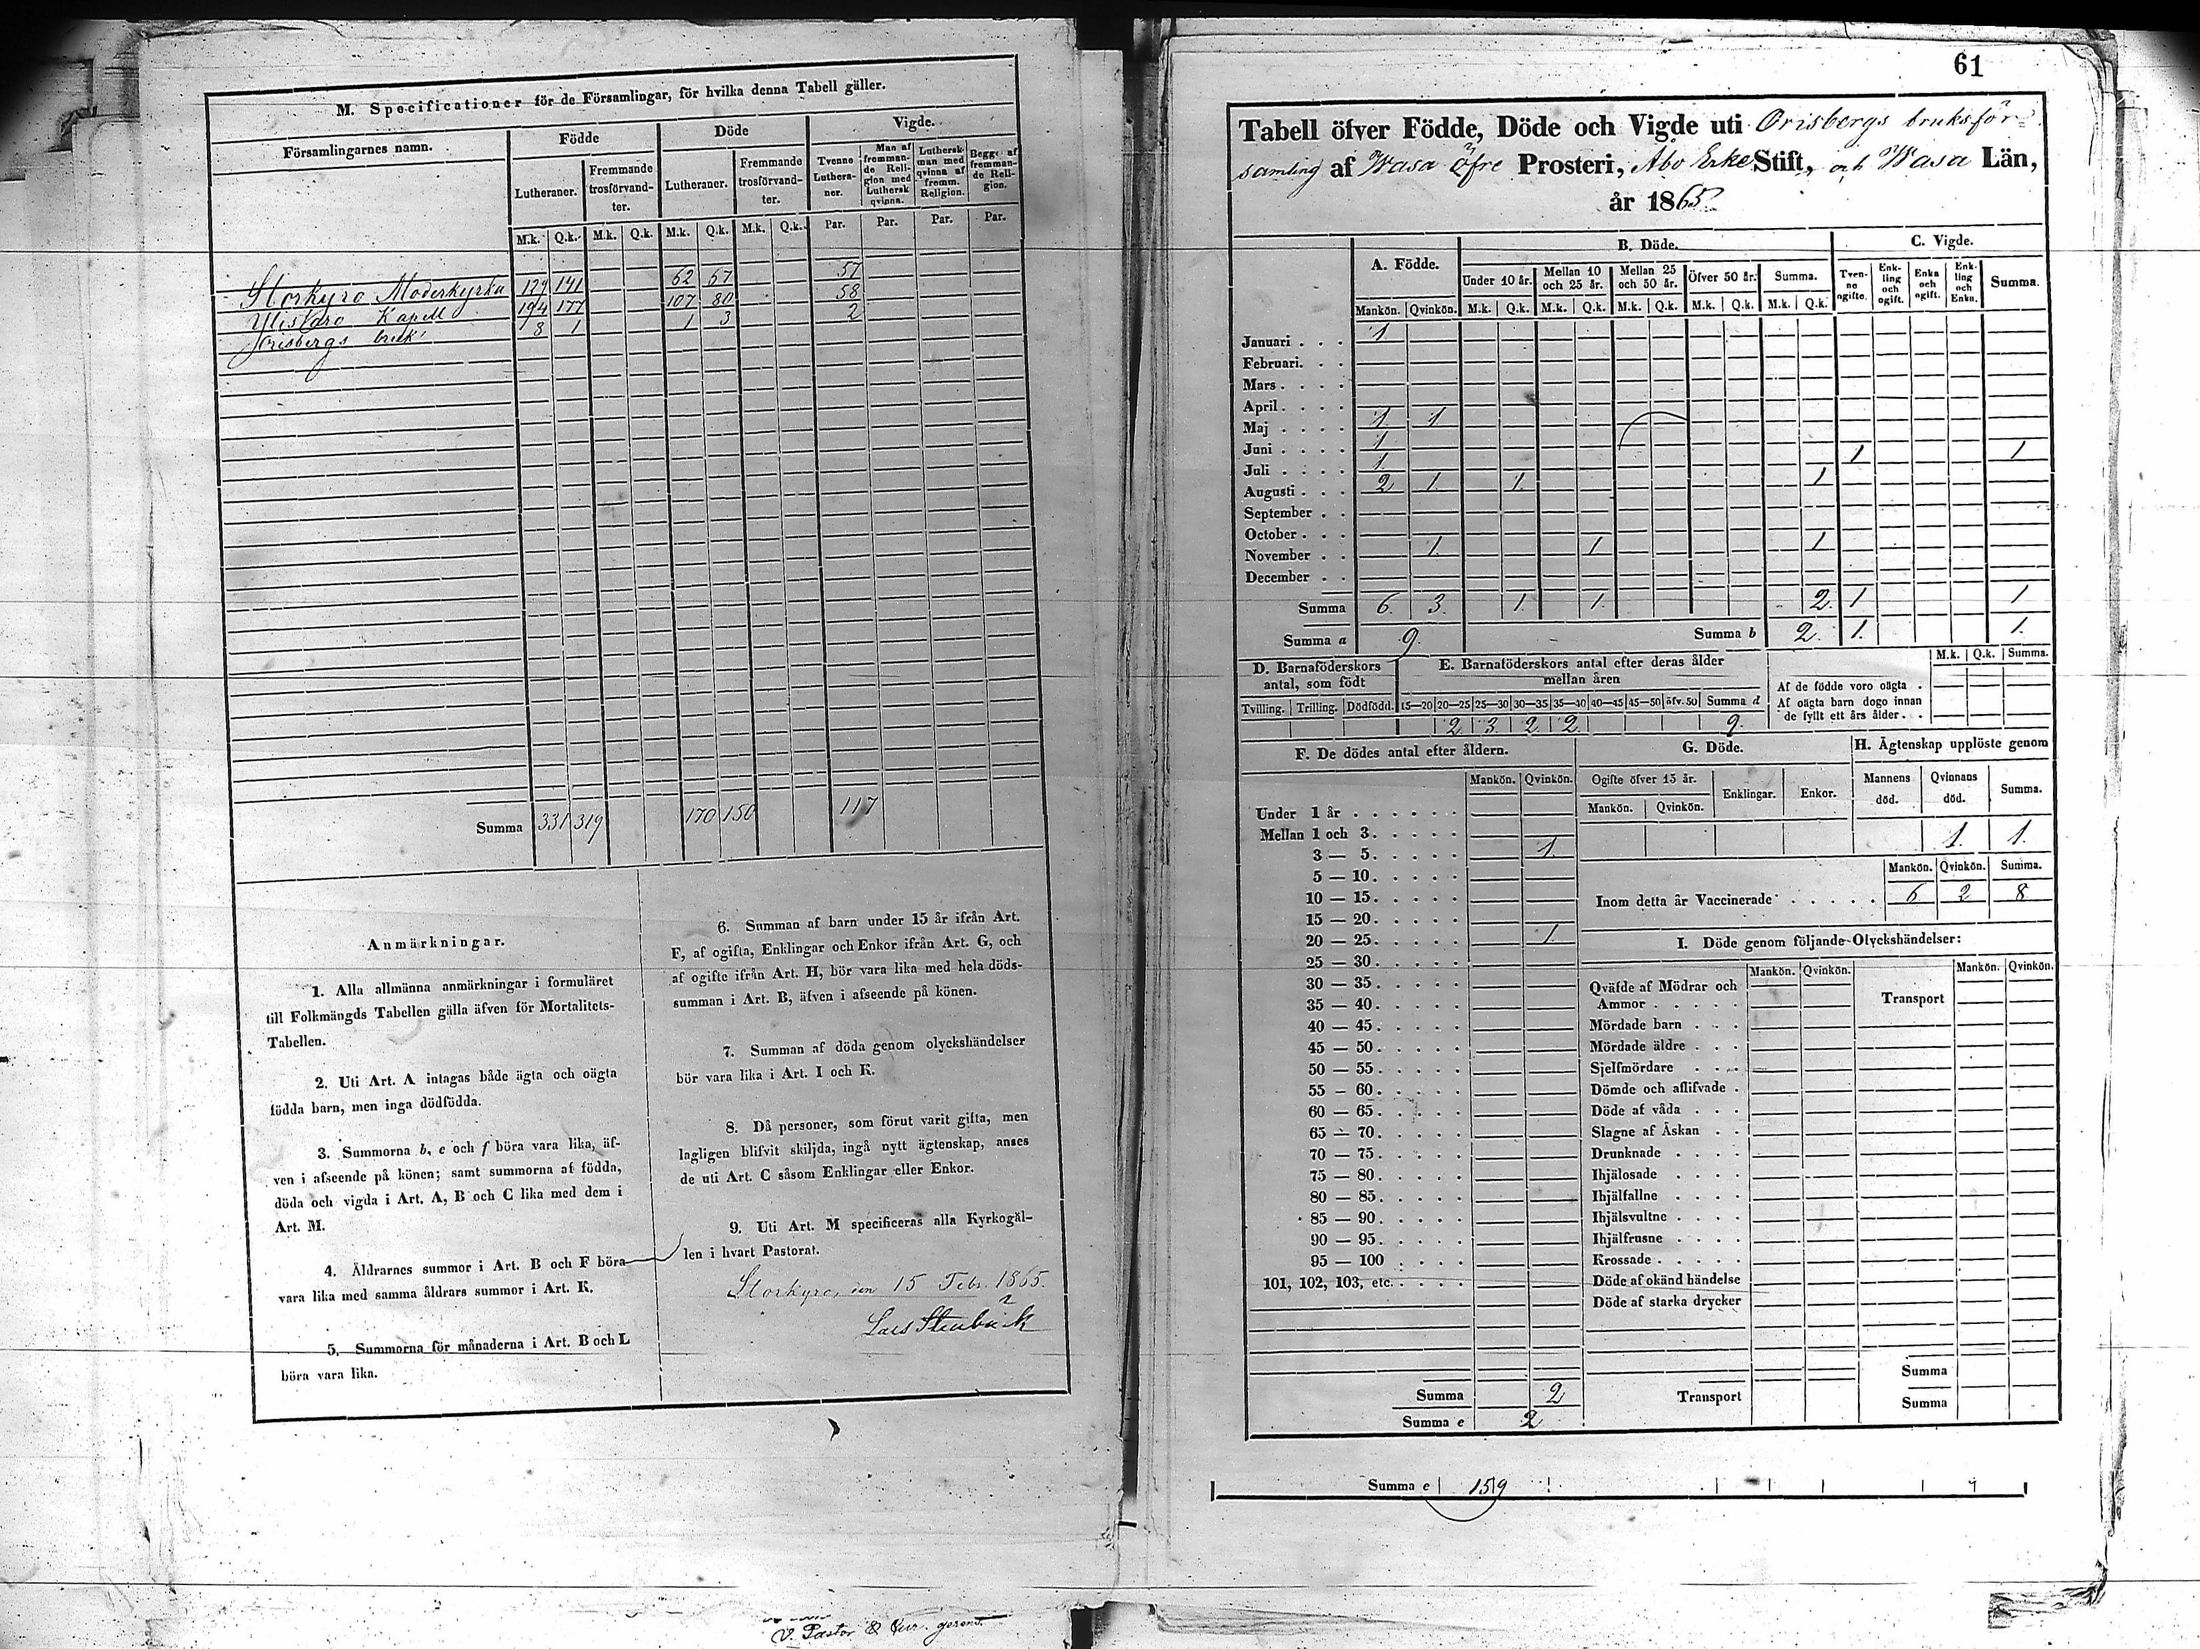 M. Specificationer för de Församlingar, för hvilka denna Tabell gäller.
Församlingarnes namn.
Födde
Döde
Vigde.
Lutheraner.
Fremmande trosförvandter.
Lutheraner.
Fremmande trosförvandter.
Tvenne Lutheraner.
Man af fremmande Religion med Luthersk qvinna.
Luthersk man med qvinna af fremm. Religion.
Begge af fremmande Religion.
M.k. Q.k. M.k. Q.k. M.k. Q.k. M.k. Q.k. Par. Par. Par. Par.
Storkyro Moderkyrka 129 141 62 67 57
Ylistaro Kapell 194 177 107 80 58
Orisbergs bruk 8 1 1 3 2
Summa 331 319 170 150 117
Anmärkningar.
1. Alla allmänna anmärkningar i formuläret
till Folkmängds Tabellen gälla äfven för Mortalitets-
Tabellen.
2. Uti Art. A intagas både ägta och oägta
födda barn, men inga dödfödda.
3. Summorna b, e och f böra vara lika, äf-
ven i afseende på könen; samt summorna af födda,
döda och vigda i Art. A, B och C lika med dem i
Art. M.
4. Äldrarnes summor i Art. B och F böra
vara lika med samma åldrars summor i Art. K.
5. Summorna för månaderna i Art. B och L
böra vara lika.
6. Summan af barn under 15 år ifrån Art.
F, af ogifta, Enklingar och Enkor ifrån Art. G, och
af ogifte ifrån Art. H, bör vara lika med hela döds-
summan i Art. B, äfven i afseende på könen.
7. Summan af döda genom olyckshändelser
bör vara lika i Art. I och K.
8. Då personer, som förut varit gifta, men
lagligen blifvit skiljda, ingå nytt ägtenskap, anses
de uti Art. C såsom Enklingar eller Enkor.
9. Uti Art. M specificeras alla Kyrkogäl-
len i hvart Pastorat.
Storkyro, den 15 Febr. 1865.
Lars Stenbäck
V. Pastor & Cur. gerens.
61
Tabell öfver Födde, Döde och Vigde uti Orisbergs bruksför-
samling af Wasa öfre Prosteri, Åbo Erke Stift, och Wasa Län,
år 1865.
A. Födde.
B. Döde.
C. Vigde.
Under 10 år. Mellan 10 och 25 år. Mellan 25 och 50 år. Öfver 50 år. Summa.
Tvenne ogifte. Enkling och ogift. Enka och ogift. Enkling och Enka. Summa.
Mankön. Qvinkön. M.k. Q.k. M.k. Q.k. M.k. Q.k. M.k. Q.k. M.k. Q.k.
Januari . . . 1
Februari. . .
Mars . . . .
April . . . .
Maj . . . . 1 1
Juni . . . . 1
Juli . . . . 1 1 1
Augusti . . . 2 1 1 1
September . .
October . . .
November . . 1 1 1
December . .
Summa 6 3 1 1 2 1 1
Summa a 9. Summa b 2 1. 1.
D. Barnaföderskors antal, som födt
Tvilling. Trilling. Dödfödd.
E. Barnaföderskors antal efter deras ålder mellan åren
15—20 20—25 25—30 30—35 35—40 40—45 45—50 öfv. 50 Summa d
2 3 2 2 9.
M.k. Q.k. Summa.
Af de födde voro oägta .
Af oägta barn dogo innan
de fyllt ett års ålder . .
F. De dödes antal efter åldern.
Mankön. Qvinkön.
Under 1 år . . . . . .
Mellan 1 och 3. . . . .
3 — 5. . . . . 1.
5 — 10. . . . .
10 — 15. . . . .
15 — 20. . . . .
20 — 25. . . . . 1.
25 — 30. . . . .
30 — 35. . . . .
35 — 40. . . . .
40 — 45. . . . .
45 — 50. . . . .
50 — 55. . . . .
55 — 60. . . . .
60 — 65. . . . .
65 — 70. . . . .
70 — 75. . . . .
75 — 80. . . . .
80 — 85. . . . .
85 — 90. . . . .
90 — 95. . . . .
95 — 100 . . . .
101, 102, 103, etc. . . . .
Summa 2
Summa e 2
G. Döde.
Ogifte öfver 15 år. Enklingar. Enkor.
Mankön. Qvinkön.
H. Ägtenskap upplöste genom
Mannens död. Qvinnans död. Summa.
1. 1.
Mankön. Qvinkön. Summa.
Inom detta år Vaccinerade . . . . . 6 2 8
I. Döde genom följande Olyckshändelser:
Mankön. Qvinkön. Mankön. Qvinkön.
Qväfde af Mödrar och
Ammor . . . . . Transport
Mördade barn . . .
Mördade äldre . . .
Sjelfmördare . . .
Dömde och aflifvade .
Döde af våda . . .
Slagne af Åskan . .
Drunknade . . . .
Ihjälosade . . . .
Ihjälfallne . . . .
Ihjälsvultne . . . .
Ihjälfrusne . . . .
Krossade . . . . .
Döde af okänd händelse
Döde af starka drycker
Summa
Transport Summa
Summa e 159